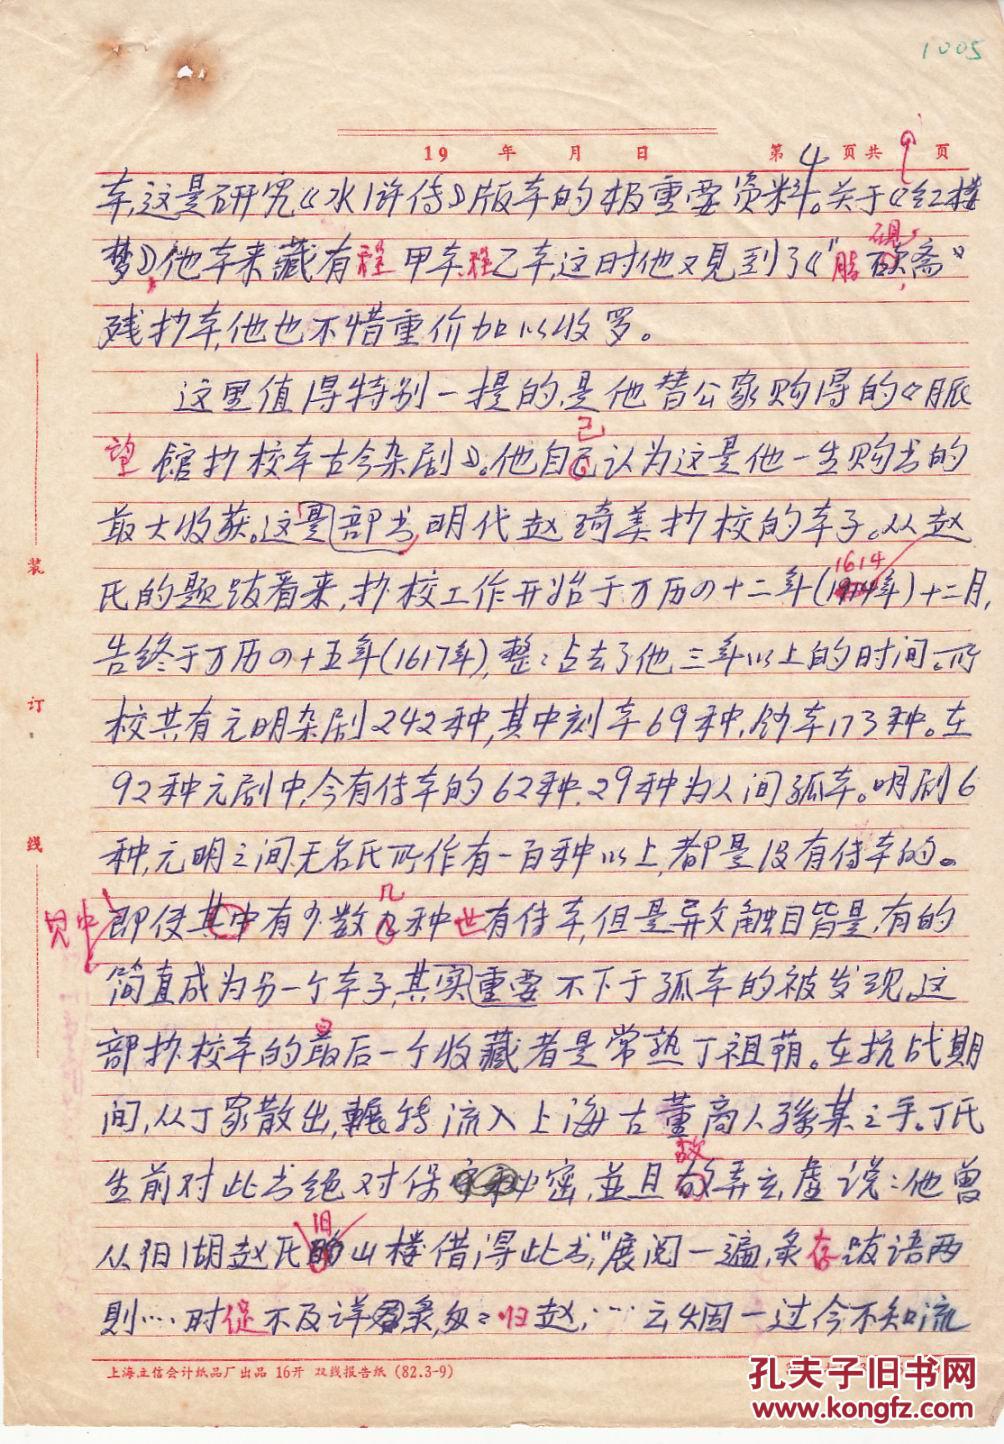 1005
19 年 月 日 第4页共9页
本,这是研究《水浒传》版本的极重要资料。关于《红楼
梦》,他本来藏有程甲本、程乙本,这时他又見到了《脂硯斋》
残抄本,他也不惜重价加以收罗。
这里值得特别一提的,是他替公家购得的《脈
望館抄校本古今杂剧》。他自己认为这是他一生购书的
最大收获。这部书是明代赵琦美抄校的本子。从赵
氏的题跋看来,抄校工作开始于万历四十二年(1614年)十二月,
告终于万历四十五年(1617年),整整占去了他三年以上的时间。所
校共有元明杂剧242种,其中刻本69种,钞本173种。在
92种元剧中,今有传本的62种,29种为人间孤本。明剧6
种,元明之间无名氏所作有一百种以上,都是没有传本的。
即使其中有少数几种世有传本,但是异文触目皆是,有的
简直成为另一个本子,其重要实不下于孤本的被发现。这
部抄校本的最后一个收藏者是常熟丁祖荫。在抗战期
间,从丁家散出,輾转流入上海古董商人孫某之手。丁氏
生前对此书绝对保密,並且故弄玄虚说:他曾
从旧湖赵氏旧山楼借得此书,"展阅一遍,录存跋语两
則…时促不及详录,匆匆归赵,…云烟一过今不知流
装
订
线
上海立信会计纸品厂出品 16开 双线报告纸 (82.3-9)
孔夫子旧书网
www.kongfz.com